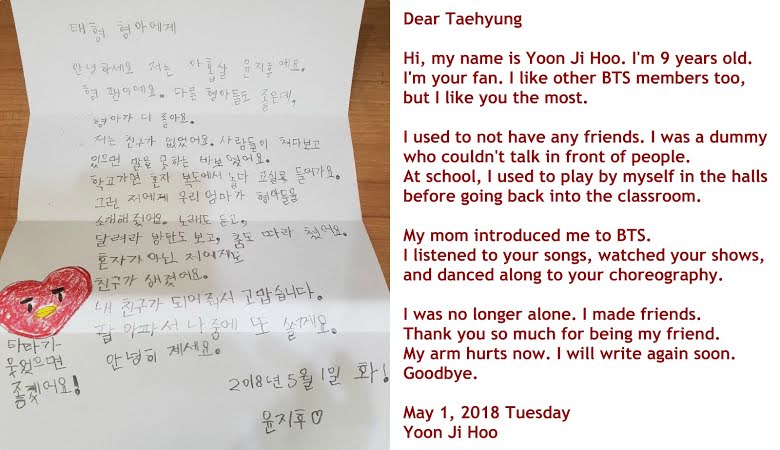 태형 형아에게
안녕하세요 저는 아홉살 윤지후에요.
형 팬이에요. 다른 형아들도 좋은데,
형아가 더 좋아요.
저는 친구가 없었어요. 사람들이 쳐다보고
있으면 말을 못하는 바보였어요.
학교가면 혼자 복도에서 놀다 교실로 들어가요.
그런 저에게 우리 엄마가 형아들을
소개해 줬어요. 노래도 듣고,
달려라 방탄도 보고, 춤도 따라 췄어요.
혼자가 아닌 저에게도
친구가 생겼어요.
내 친구가 되어줘서 고맙습니다.
팔 아파서 나중에 또 쓸게요.
안녕히 계세요.
2018년 5월 1일 화!
윤지후♡
타타가
웃었으면
좋겠어요!
Dear Taehyung
Hi, my name is Yoon Ji Hoo. I'm 9 years old.
I'm your fan. I like other BTS members too,
but I like you the most.
I used to not have any friends. I was a dummy
who couldn't talk in front of people.
At school, I used to play by myself in the halls
before going back into the classroom.
My mom introduced me to BTS.
I listened to your songs, watched your shows,
and danced along to your choreography.
I was no longer alone. I made friends.
Thank you so much for being my friend.
My arm hurts now. I will write again soon.
Goodbye.
May 1, 2018 Tuesday
Yoon Ji Hoo